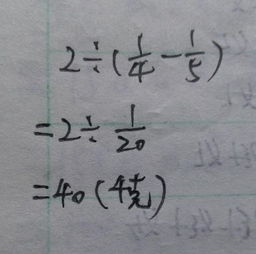 2÷(1/4-1/5)
=2÷1/20
=40(千克)